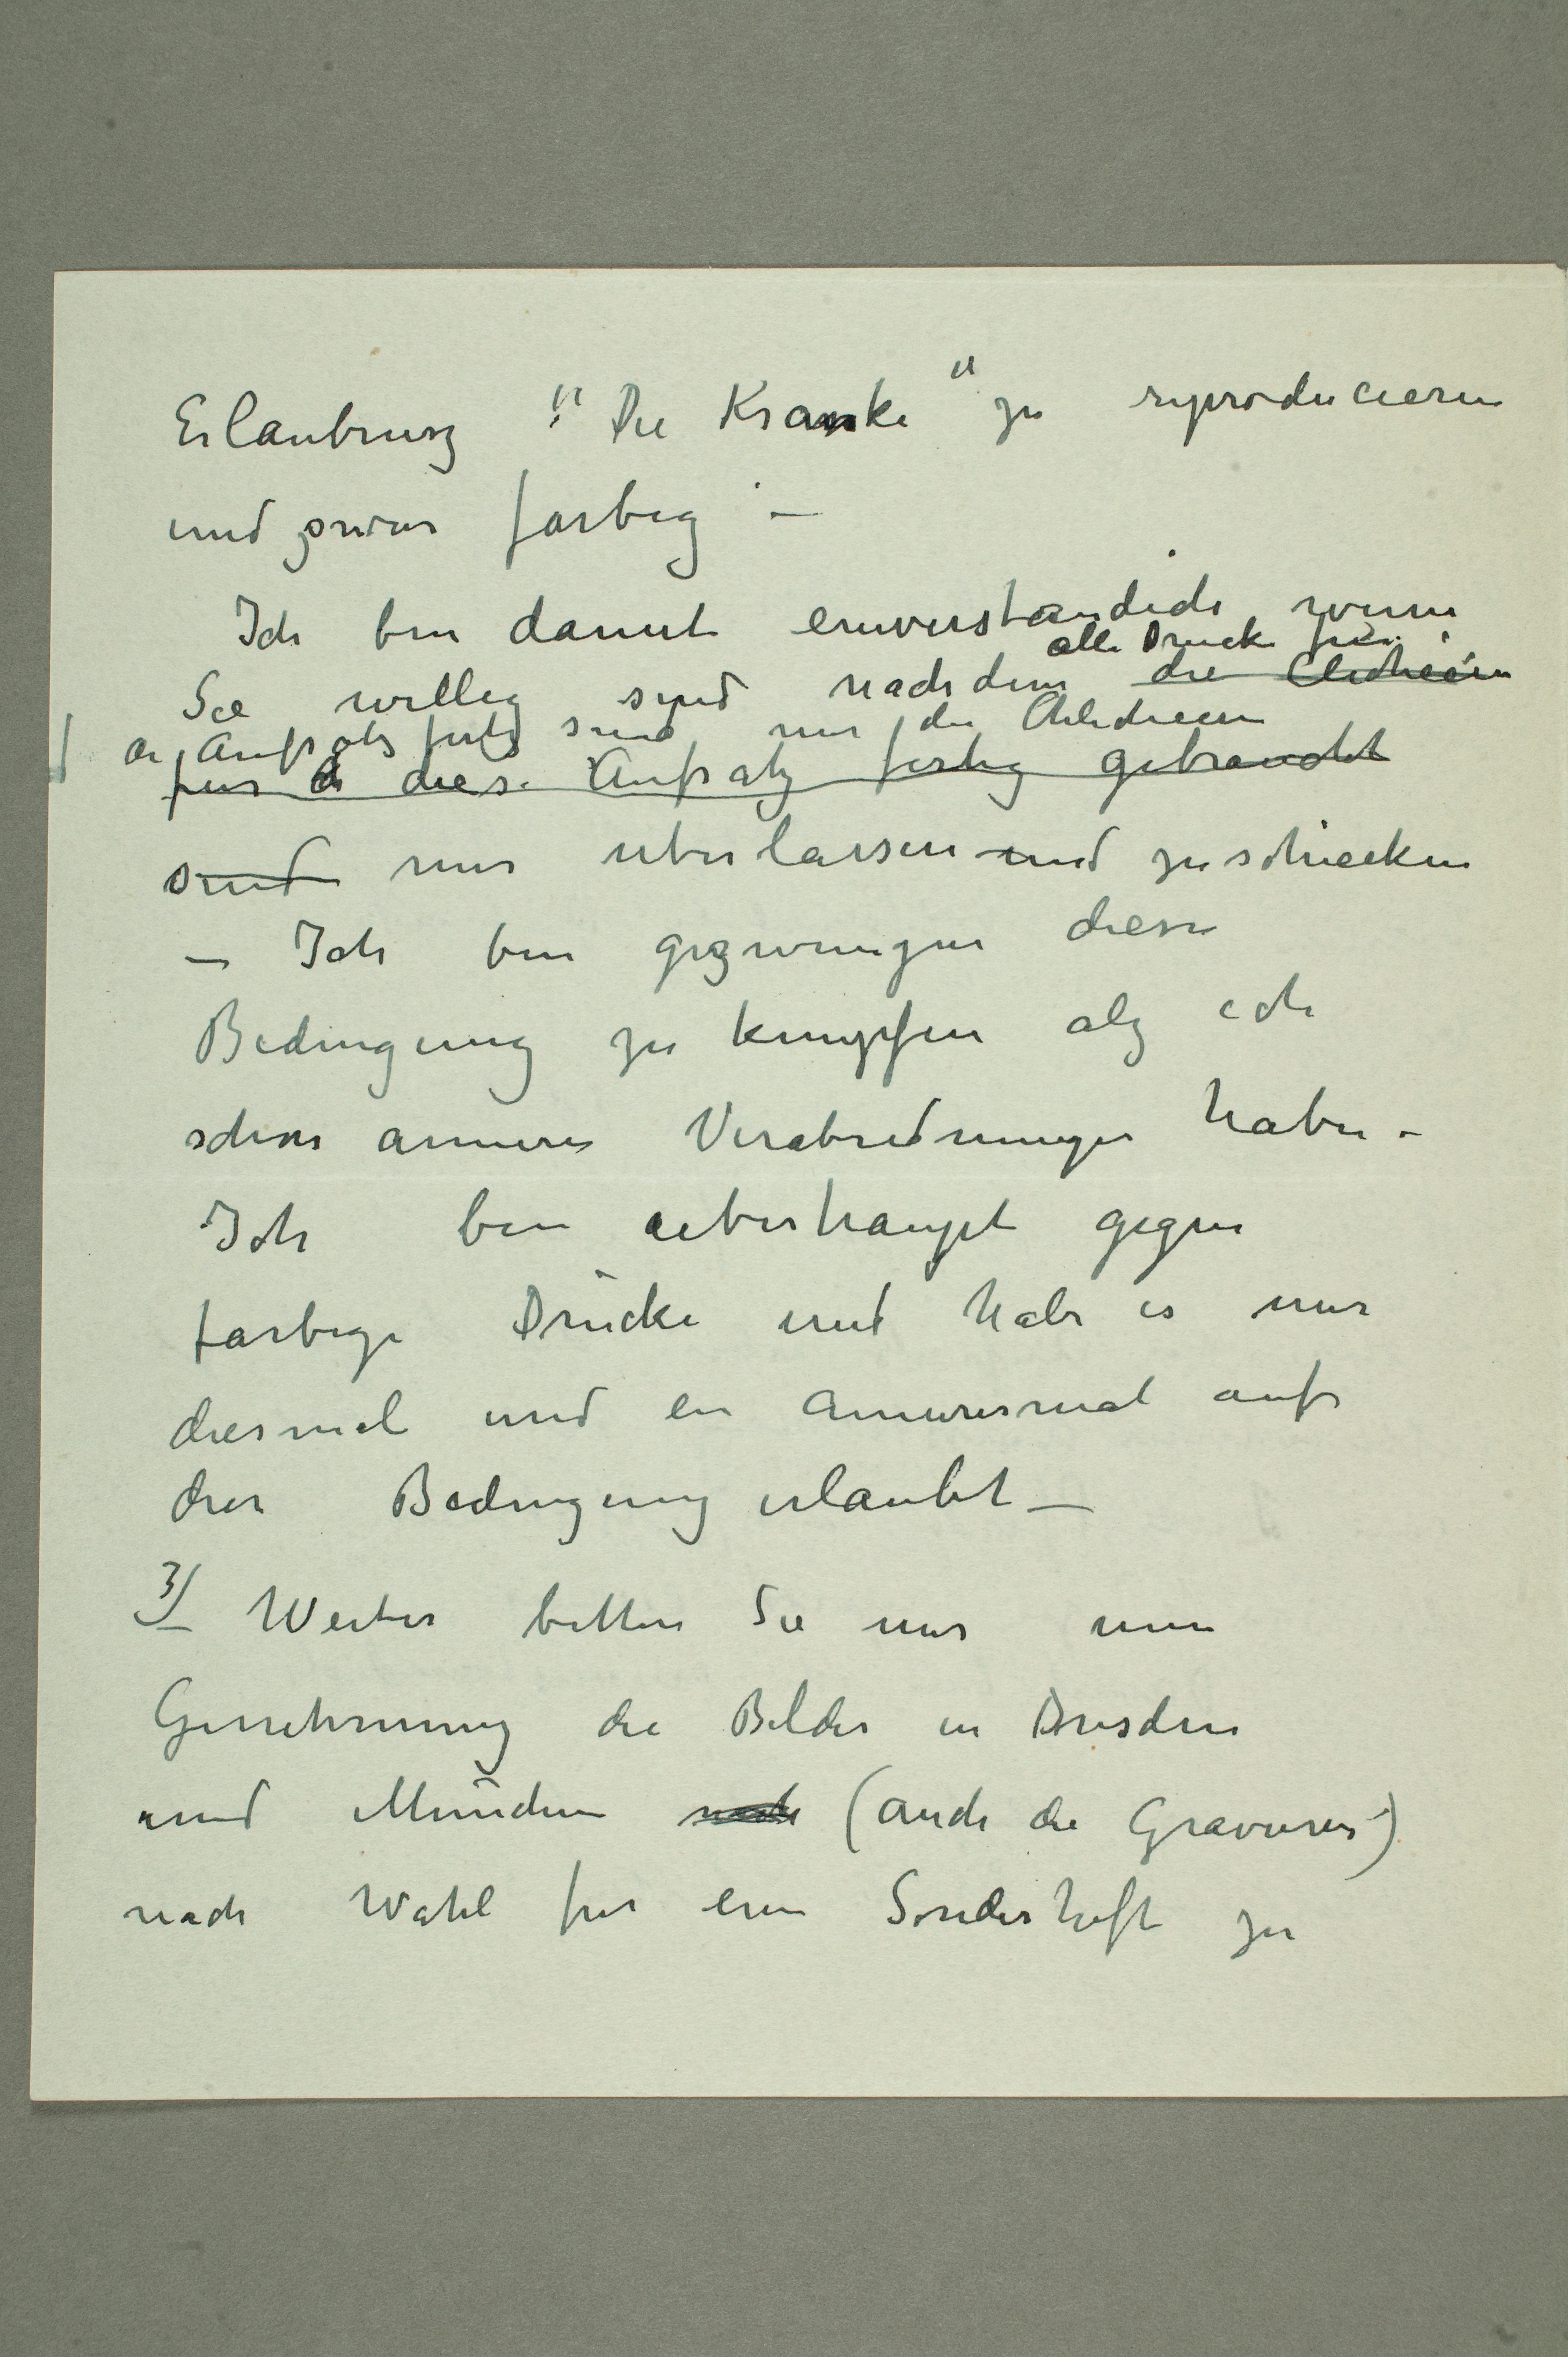 Erlaubnisz "Die Kranke" zu reproducieren
und zwar farbig –
Ich bin damit einverstandich wenn
alle Drucke für
Sie willig sind nachdem die Clichéen
den Aufsatz fertig sind mir die Chlicheen
für d diese Aufsatz fertig gebraucht
sind mir überlassen und zu schiecken
– Ich bin gezwungen diese
Bedingung zu knupfen alz ich
schon annere Verabredningen habe –
Ich bin ueberhaupt gegen
farbige Drücke und habe es nur
diesmal und ein anneresmal auf
der Bedingung erlaubt –
3/ Weiter bitten Sie mir um
Genehmnung die Bilder in Dresden
und München (auch die Gravuren)
nach Wahl fur ein Sonderheft zu